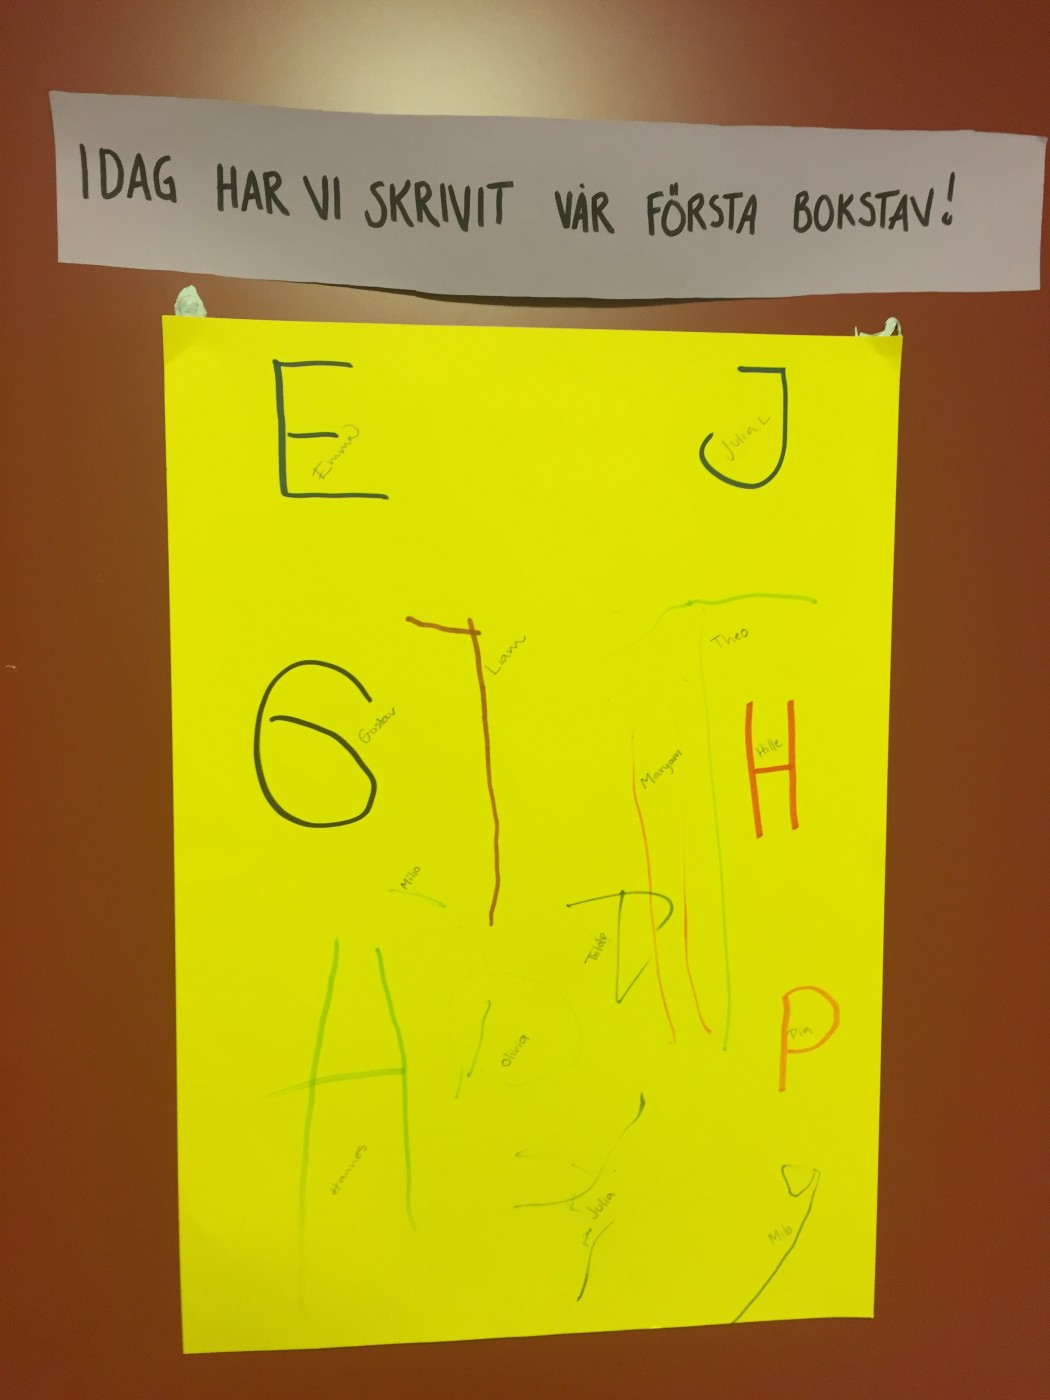 IDAG HAR VI SKRIVIT VÅR FÖRSTA BOKSTAV!
E
Emma
J
Julia L
Liam
Theo
G
Gustav
Maryam
H
Hille
Milio
Tilde
A
Hannes
Olivia
P
Pia
Julia